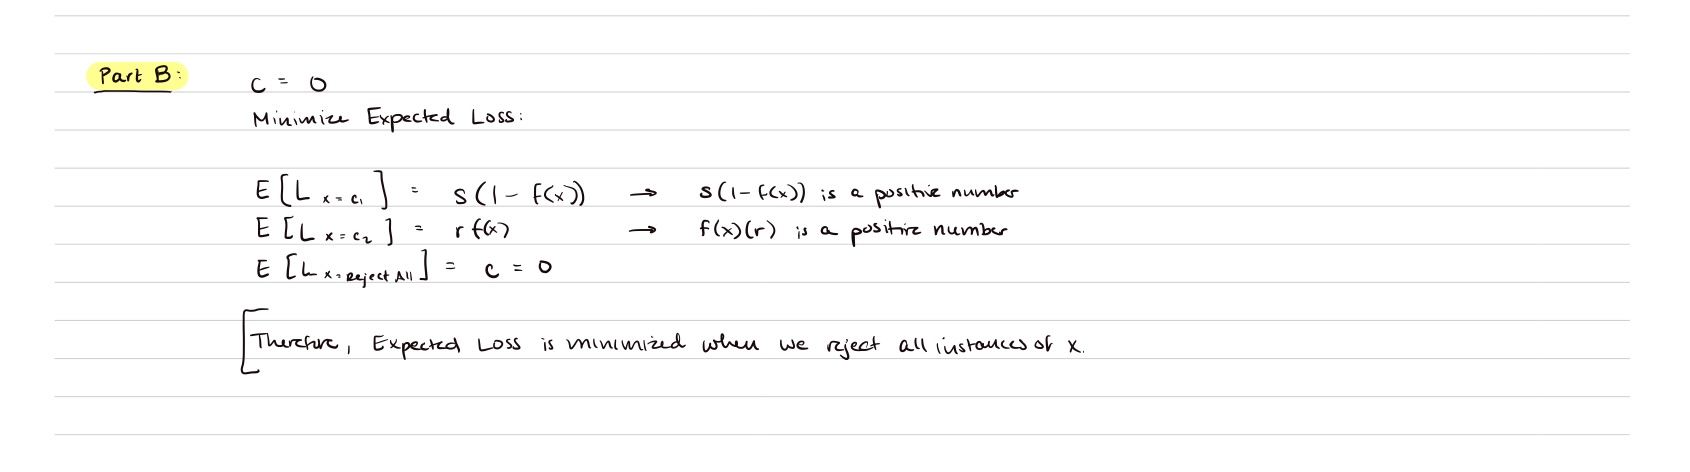 Part B:
C = 0
Minimize Expected Loss:
E[L x=c₁] = s(1-f(x)) → s(1-f(x)) is a positive number
E[L x=c₂] = r f(x) → f(x)(r) is a positive number
E[L x=Reject All] = c = 0
Therefore, Expected Loss is minimized when we reject all instances of x.